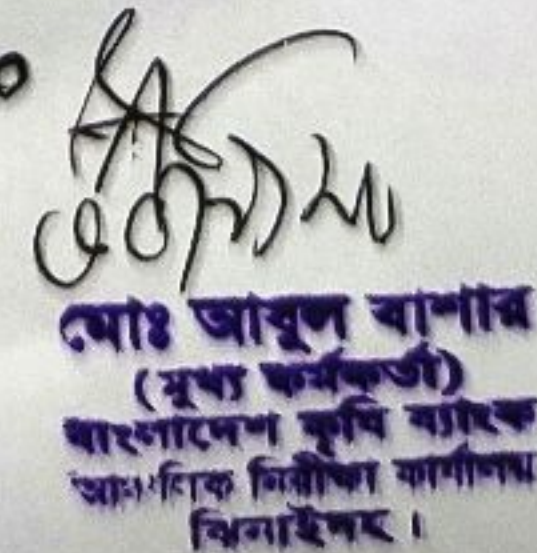 মোঃ আবুল বাশার
(মুখ্য কর্মকর্তা)
বাংলাদেশ কৃষি ব্যাংক
আঞ্চলিক নিরীক্ষা কার্যালয়
ঝিনাইদহ।